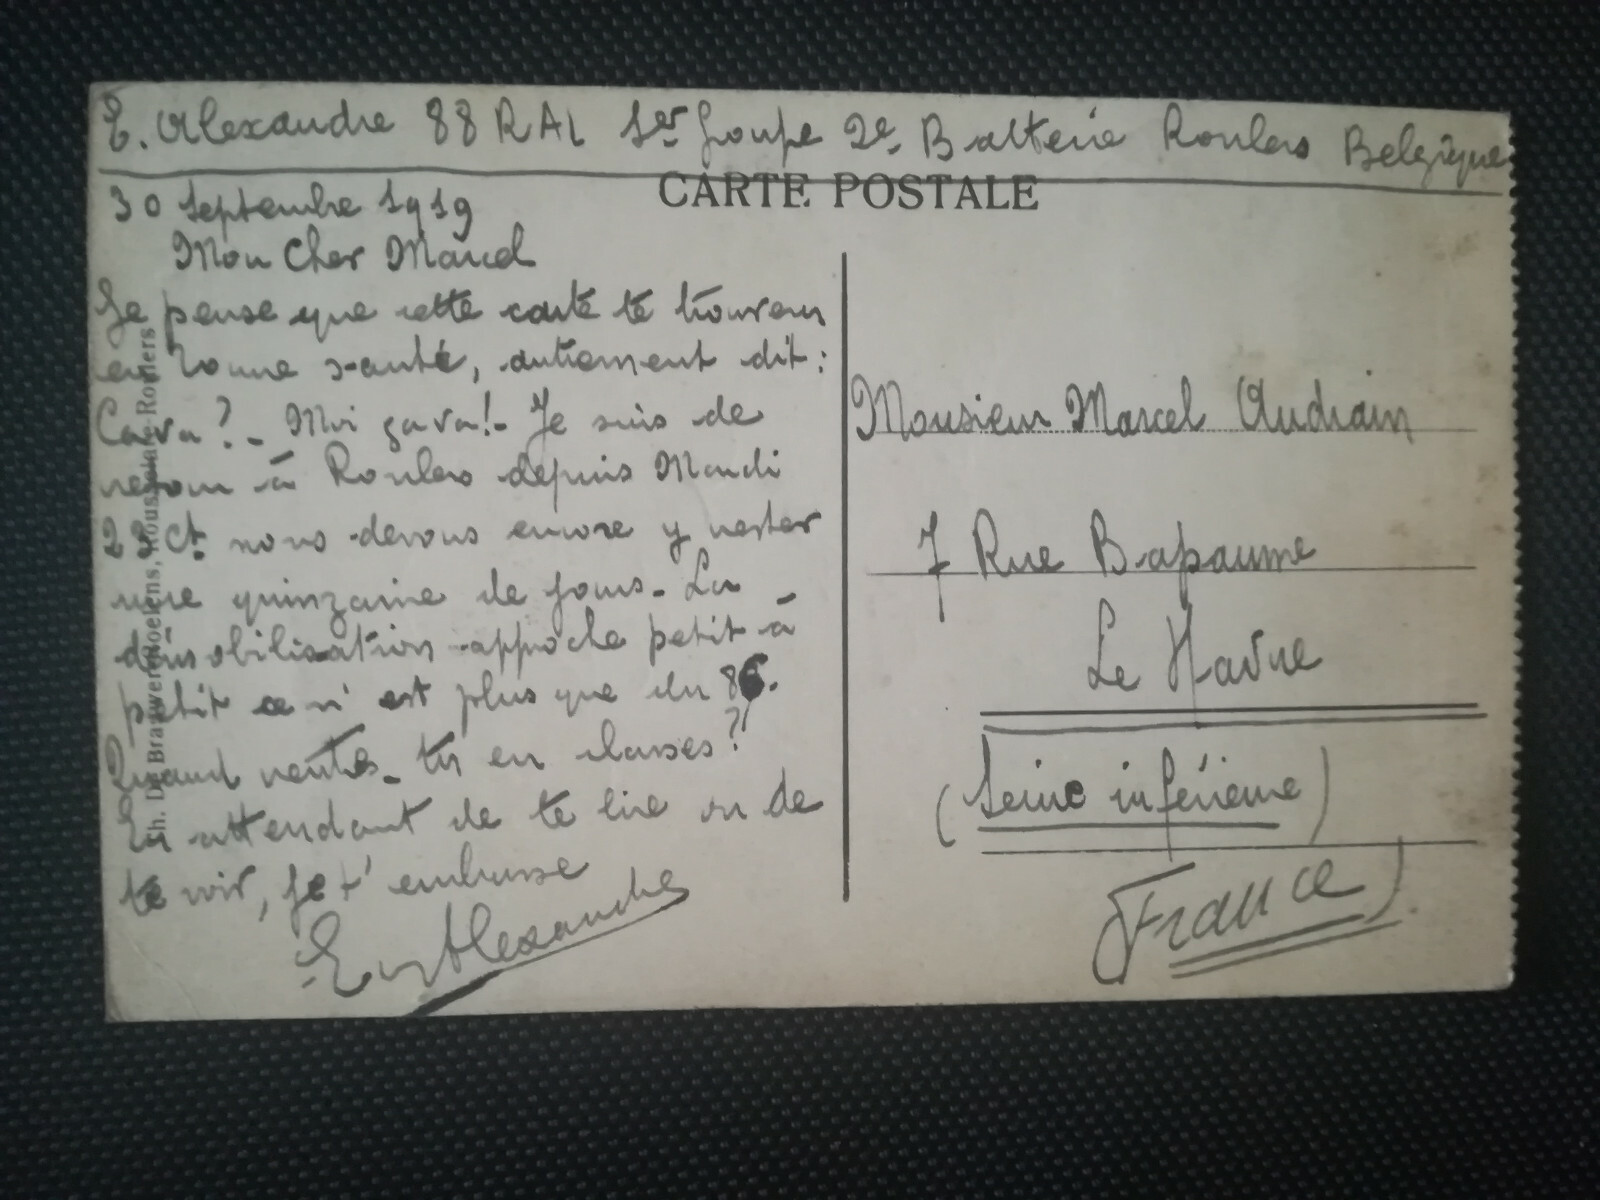 E. Alexandre 88 RAL 1er Groupe 2e Batterie Roulers Belgique
CARTE POSTALE
30 Septembre 1919
Mon Cher Marcel
Je pense que cette carte te trouvera
en bonne santé, autrement dit :
Ca va ? _ Moi ça va ! - Je suis de
retour à Roulers depuis Mardi
23 Ct. nous devons encore y rester
une quinzaine de jours - La
démobilisation approche petit à
petit ce n'est plus que du 86.
Quand rentres-tu en classes ?
En attendant de te lire ou de
te voir, je t'embrasse
Alexandre
Monsieur Marcel Audrain
7 Rue Bapaume
Le Havre
(Seine inférieure)
France)
Roulers